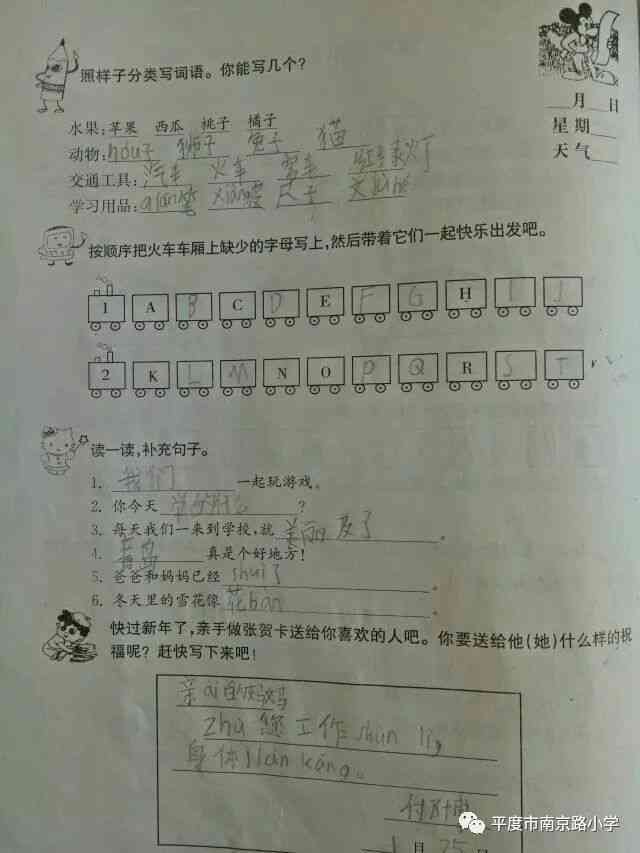 照样子分类写词语。你能写几个?
月 日
水果:苹果 西瓜 桃子 橘子
星期
动物:hóu子 狮子 兔子 猫
天气
交通工具:汽车 火车
学习用品:qiān笔 尺子 文
按顺序把火车车厢上缺少的字母写上,然后带着它们一起快乐出发吧。
1 A B C D E F G H I J
2 K L M N O P Q R S T
读一读,补充句子。
1. 我们 一起玩游戏。
2. 你今天 学的什么 ?
3. 每天我们一来到学校,就 美丽 。
4. 青岛 真是个好地方!
5. 爸爸和妈妈已经 shuì了 。
6. 冬天里的雪花像 花bàn 。
快过新年了,亲手做张贺卡送给你喜欢的人吧。你要送给他(她)什么样的祝
福呢?赶快写下来吧!
亲ài的妈妈
zhù您工作shùn lì,
身体jiàn kāng。
1月25日
平度市南京路小学